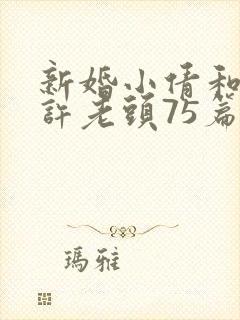 新婚小倩和
許老頭75篇
瑪雅